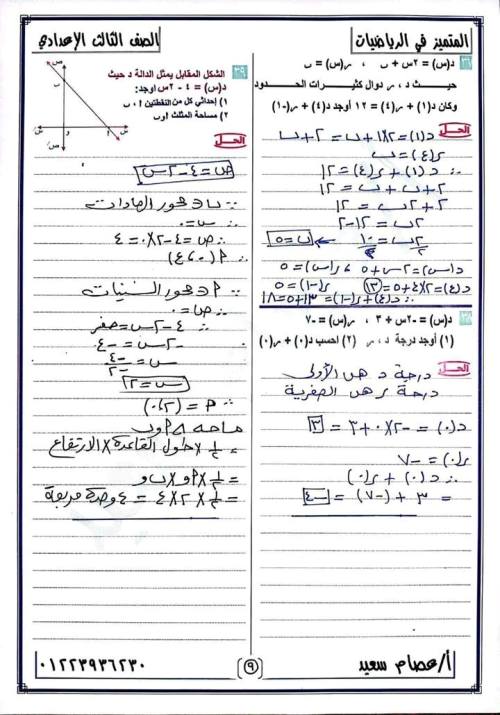 المتميز في الرياضيات
الصف الثالث الإعدادي
٣٦
د(س) = ٢س + ب ، ر(س) = ب
حيث د ، ر دوال كثيرات الحدود
وكان د(١) + ر(٤) = ١٢ أوجد د(٤) + ر(١٠)
الحل
د(١) = ٢×١ + ب = ٢ + ب
ر(٤) = ب
∴ د(١) + ر(٤) = ١٢
٢ + ب + ب = ١٢
٢ + ٢ب = ١٢
٢ب = ١٢ - ٢
٢ب/٢ = ١٠/٢ ← ب = ٥
د(س) = ٢س + ٥ ، ر(س) = ٥
د(٤) = ٢×٤ + ٥ = ١٣ ر(-١) = ٥
∴ د(٤) + ر(-١) = ١٣ + ٥ = ١٨
٣٨
د(س) = -٢س + ٣ ، ر(س) = -٧
(١) أوجد درجة د ، ر (٢) احسب د(٠) + ر(٠)
الحل
درجة د هى الأولى
درجة ر هى الصفرية
د(٠) = -٢×٠ + ٣ = ٣
ر(٠) = -٧
∴ د(٠) + ر(٠)
= ٣ + (-٧) = -٤
٣٩
الشكل المقابل يمثل الدالة د حيث
د(س) = ٤ - ٢س أوجد:
(١) إحداثي كل من النقطتين أ ، ب
(٢) مساحة المثلث أوب
ص
س
و
أ
سَ
صَ
الحل
ص = ٤ - ٢س
∵ ب ∈ محور الصادات
∴ س = ٠
∴ ص = ٤ - ٢×٠ = ٤
∵ أ ∈ محور السينات
∴ ص = ٠
∴ ٤ - ٢س = صفر
-٢س = -٤
س = -٤/-٢
س = ٢
∴ أ = (٢،٠)
مساحة △ أوب
= ١/٢ × طول القاعدة × الارتفاع
= ١/٢ × أو × ب و
= ١/٢ × ٢ × ٤ = ٤ وحدة مربعة
أ/عصام سعيد
٩
٠١٢٢٣٩٣٦٢٣٠